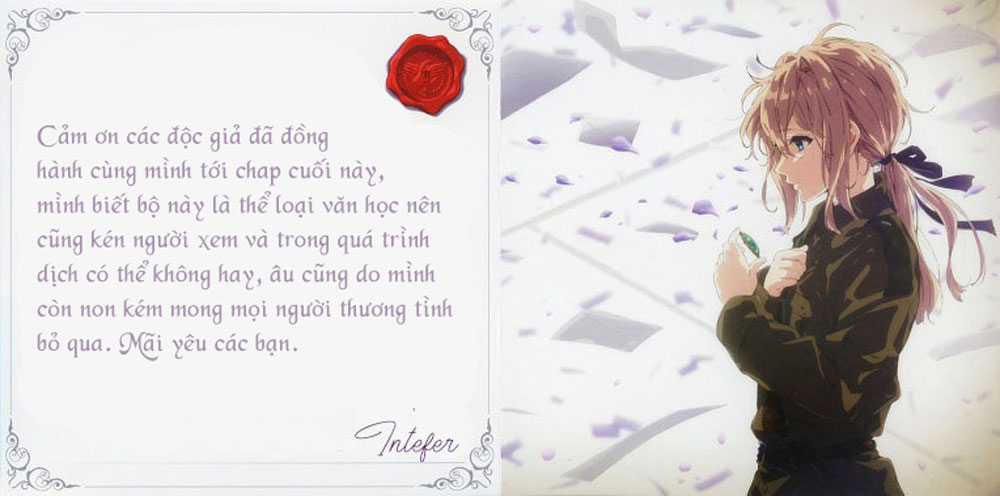 Cảm ơn các độc giả đã đồng
hành cùng mình tới chap cuối này,
mình biết bộ này là thể loại văn học nên
cũng kén người xem và trong quá trình
dịch có thể không hay, âu cũng do mình
còn non kém mong mọi người thương tình
bỏ qua. Mãi yêu các bạn.
Intefer